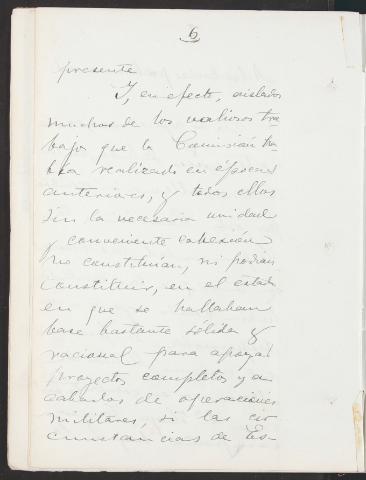 6
presente
Y, en efecto, aislados
muchos de los valiosos tra
bajos que la Comisión ha
bía realizado en épocas
anteriores, y todos ellos
sin la necesaria unidad
y conveniente cohexión
no constituían, ni podían
constituir, en el estado
en que se hallaban
base bastante sólida y
racional para apoyar
proyectos completos y a
cabados de operaciones
militares, si las cir
cunstancias de Es-